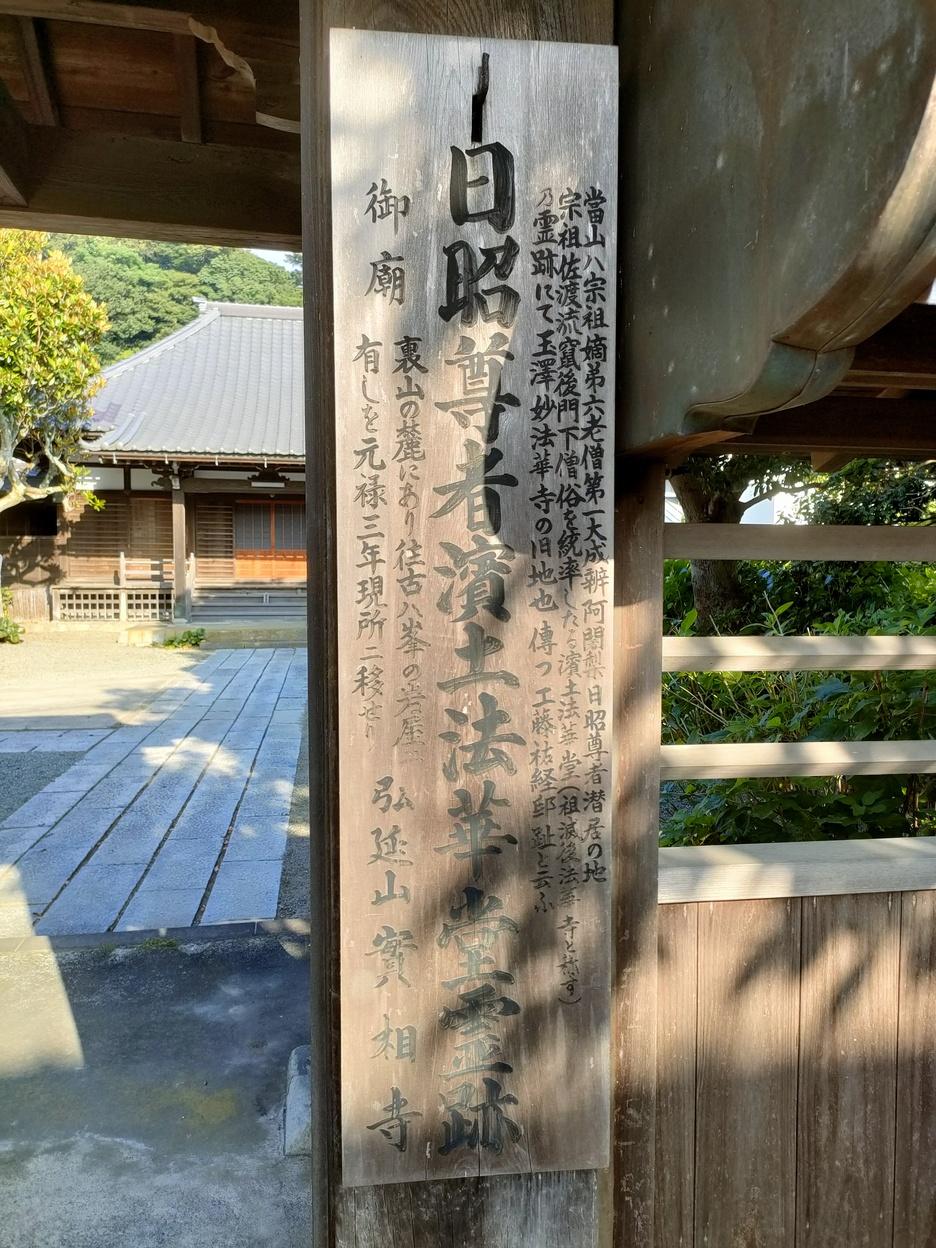 當山ハ宗祖嫡弟六老僧第一大成辧阿闍梨日昭尊者潜居の地
宗祖佐渡流竄後門下僧俗を統率したる濱土法華堂(祖滅後法華寺と称す)
乃霊跡にて玉澤妙法華寺の旧地也傳つ工藤祐経邸趾と云ふ
日昭尊者濱土法華堂霊跡
御廟
裏山の麓にあり往古ハ峯の岩屋ニ
有しを元禄三年現所ニ移せり
弘延山實相寺